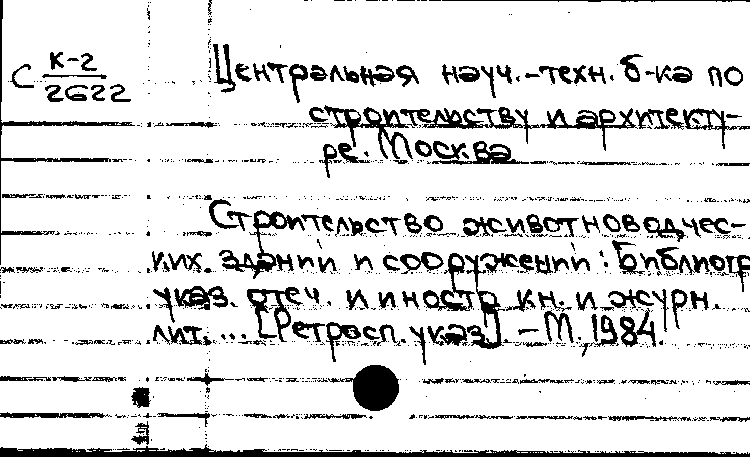 С К-2
2622
Центральная науч.-техн. б-ка по
строительству и архитекту-
ре. Москва
Строительство животноводчес-
ких зданий и сооружений: Библиогр
указ. отеч. и иностр кн. и журн.
лит. ... [Ретросп. указ]. - М, 1984.